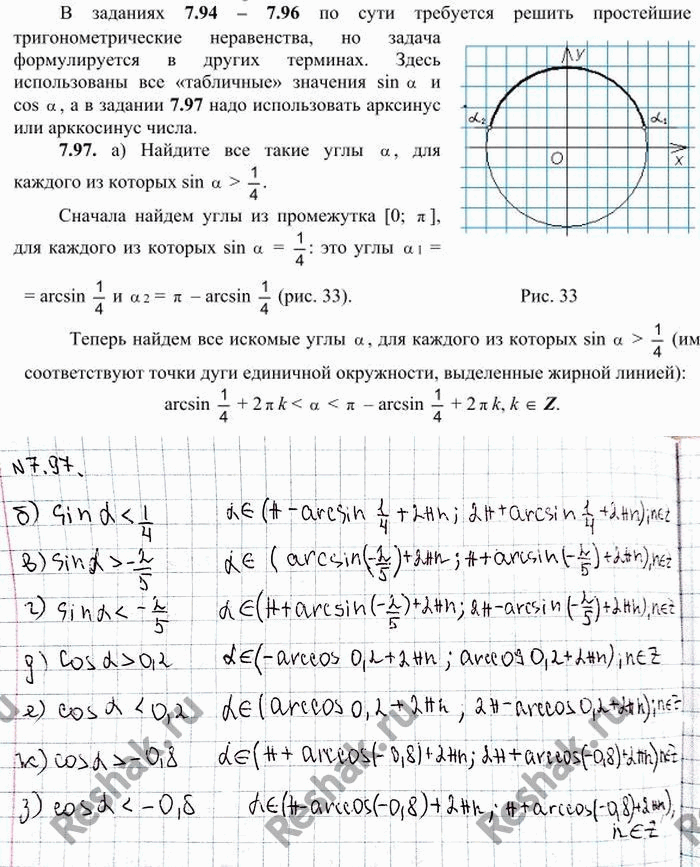 В заданиях 7.94 – 7.96 по сути требуется решить простейшие
тригонометрические неравенства, но задача
формулируется в других терминах. Здесь
использованы все «табличные» значения sin α и
cos α, а в задании 7.97 надо использовать арксинус
или арккосинус числа.
7.97. а) Найдите все такие углы α, для
каждого из которых sin α > 1/4.
Сначала найдем углы из промежутка [0; π],
для каждого из которых sin α = 1/4: это углы α1 =
= arcsin 1/4 и α2 = π – arcsin 1/4 (рис. 33).
y
α2
α1
O
x
Рис. 33
Теперь найдем все искомые углы α, для каждого из которых sin α > 1/4 (им
соответствуют точки дуги единичной окружности, выделенные жирной линией):
arcsin 1/4 + 2πk < α < π – arcsin 1/4 + 2πk, k ∈ Z.
N7.97.
б) sinα < 1/4 α∈(π-arcsin 1/4 +2πn; 2π+arcsin 1/4 +2πn), n∈Z
в) sinα > -2/5 α∈ (arcsin(-2/5)+2πn; π+arcsin(-2/5)+2πn), n∈Z
г) sinα < -2/5 α∈(π+arcsin(-2/5)+2πn; 2π-arcsin(-2/5)+2πn), n∈Z
д) cosα > 0,2 α∈(-arccos 0,2+2πn; arccos 0,2+2πn); n∈Z
е) cosα < 0,2 α∈(arccos 0,2+2πn; 2π-arccos 0,2+2πn); n∈Z
ж) cosα > -0,8 α∈(π+ arccos(-0,8)+2πn; 2π+arccos(-0,8)+2πn) n∈Z
з) cosα < -0,8 α∈(π-arccos(-0,8)+2πn; π+arccos(-0,8)+2πn),
n∈Z
Reshak.ru
Reshak.ru
Reshak.ru